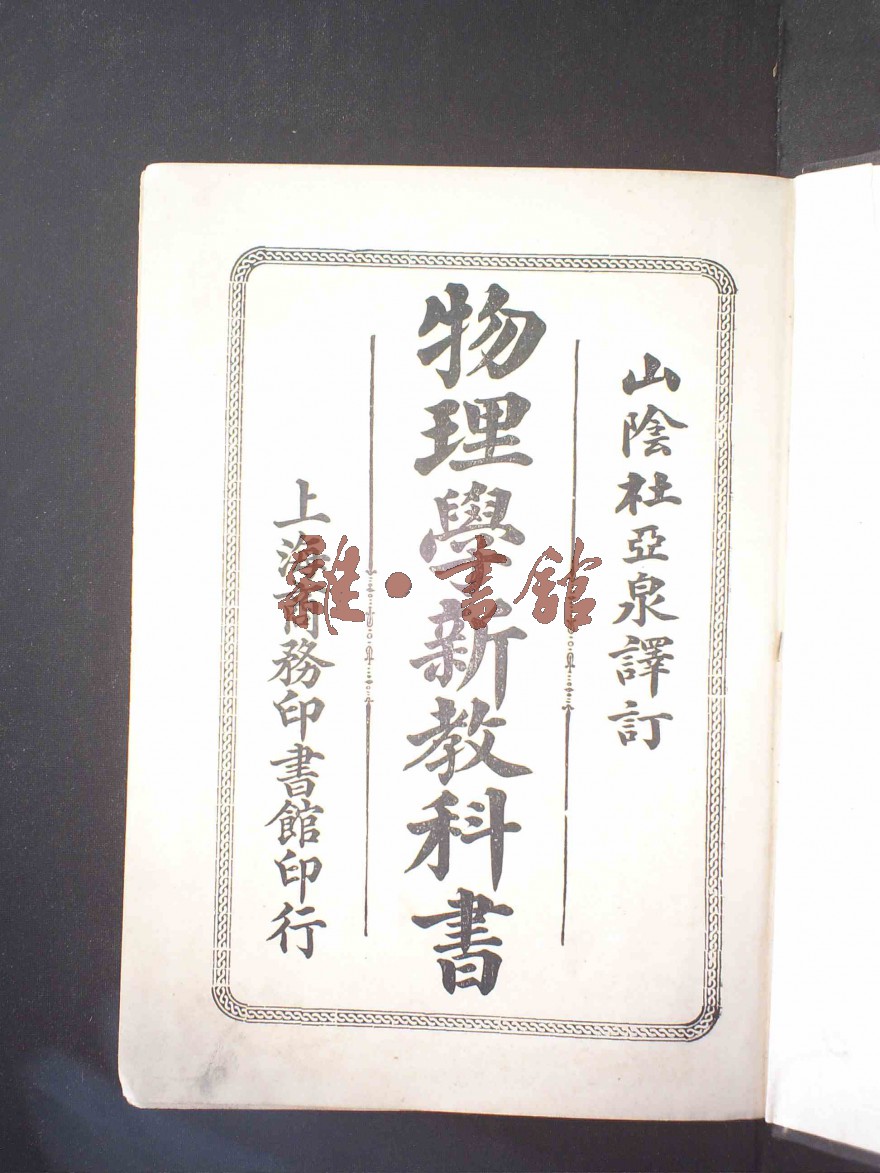 山陰杜亞泉譯訂
物理學新教科書
上海商務印書館印行
雜·書館